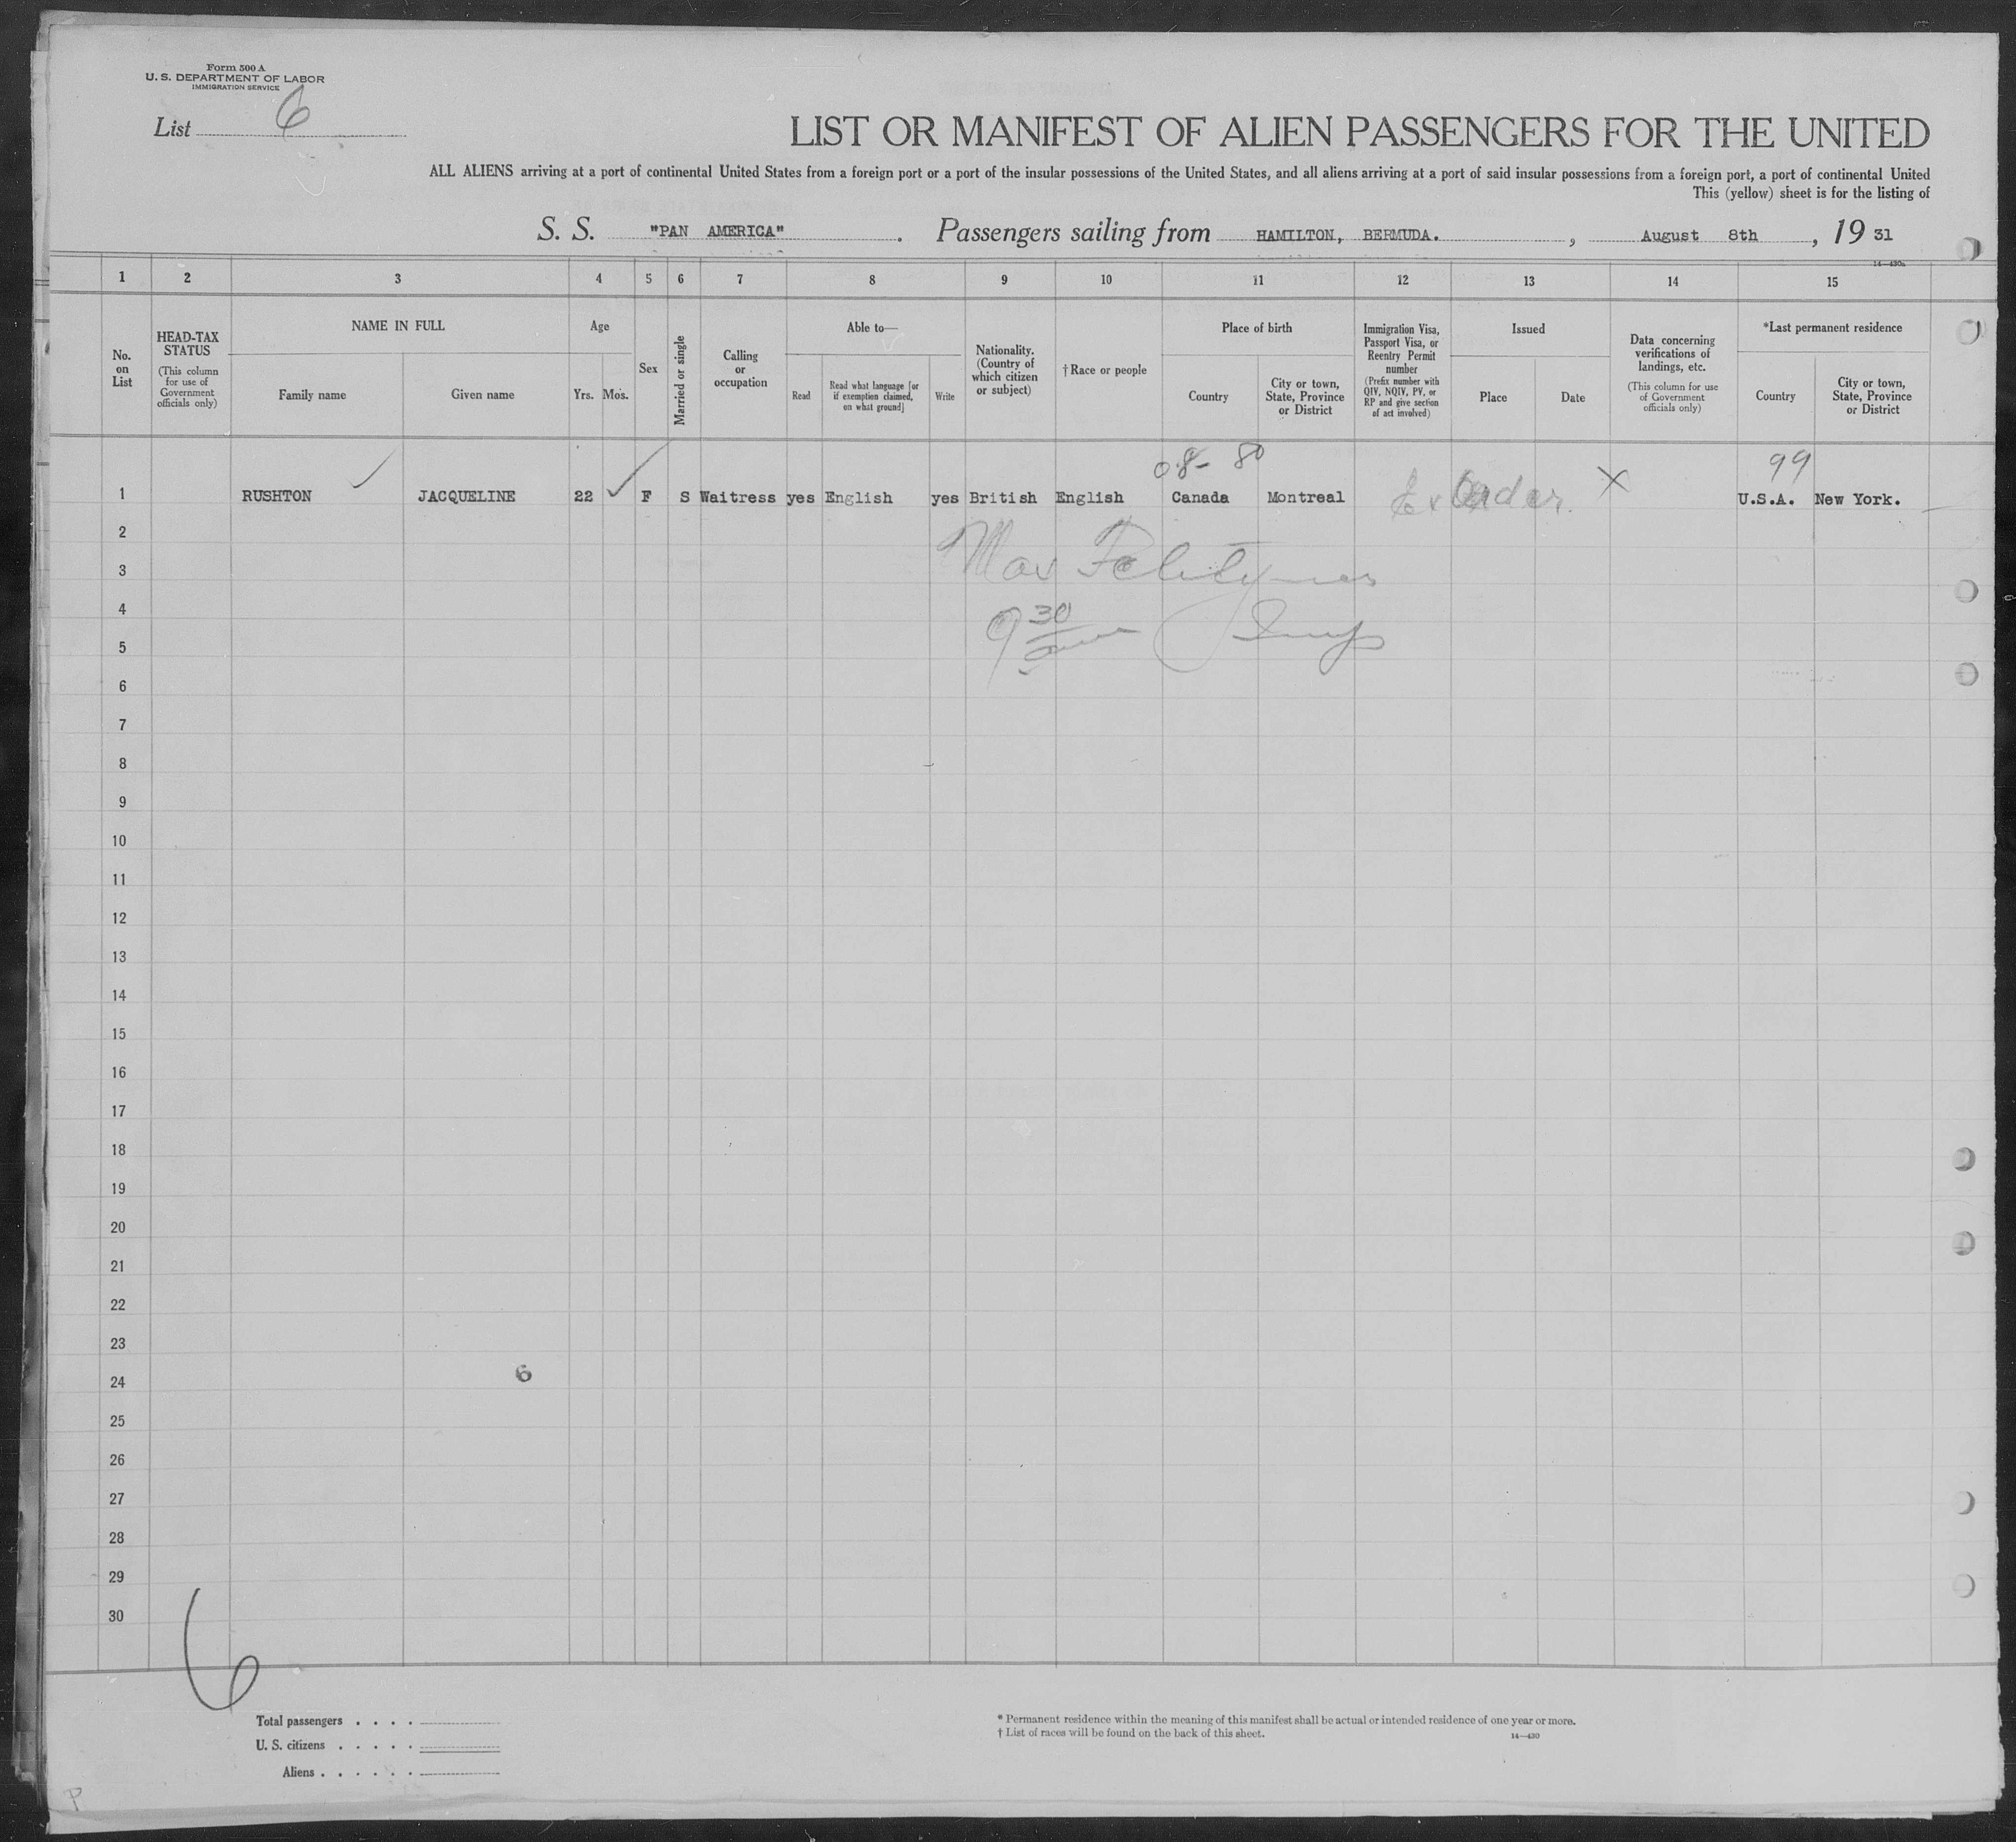 Form 500 A
U. S. DEPARTMENT OF LABOR
IMMIGRATION SERVICE
List 6
LIST OR MANIFEST OF ALIEN PASSENGERS FOR THE UNITED
ALL ALIENS arriving at a port of continental United States from a foreign port or a port of the insular possessions of the United States, and all aliens arriving at a port of said insular possessions from a foreign port, a port of continental United
This (yellow) sheet is for the listing of
S. S. "PAN AMERICA". Passengers sailing from HAMILTON, BERMUDA., August 8th, 19 31
14—430a
1 2 3 4 5 6 7 8 9 10 11 12 13 14 15
No. on List
HEAD-TAX STATUS
(This column for use of Government officials only)
NAME IN FULL
Family name
Given name
Age
Yrs. Mos.
Sex
Married or single
Calling or occupation
Able to—
Read
Read what language [or if exemption claimed, on what ground]
Write
Nationality. (Country of which citizen or subject)
† Race or people
Place of birth
Country
City or town, State, Province or District
Immigration Visa, Passport Visa, or Reentry Permit number
(Prefix number with QIV, NQIV, PV, or RP and give section of act involved)
Issued
Place
Date
Data concerning verifications of landings, etc.
(This column for use of Government officials only)
*Last permanent residence
Country
City or town, State, Province or District
08- 80 99
1 RUSHTON JACQUELINE 22 F S Waitress yes English yes British English Canada Montreal Ex Order X U.S.A. New York.
2
3
4 9 30
5
6
7
8
9
10
11
12
13
14
15
16
17
18
19
20
21
22
23
6
24
25
26
27
28
29
30
6
Total passengers . . . .
U. S. citizens . . . . .
Aliens . . . . . .
* Permanent residence within the meaning of this manifest shall be actual or intended residence of one year or more.
† List of races will be found on the back of this sheet.
14—430
P